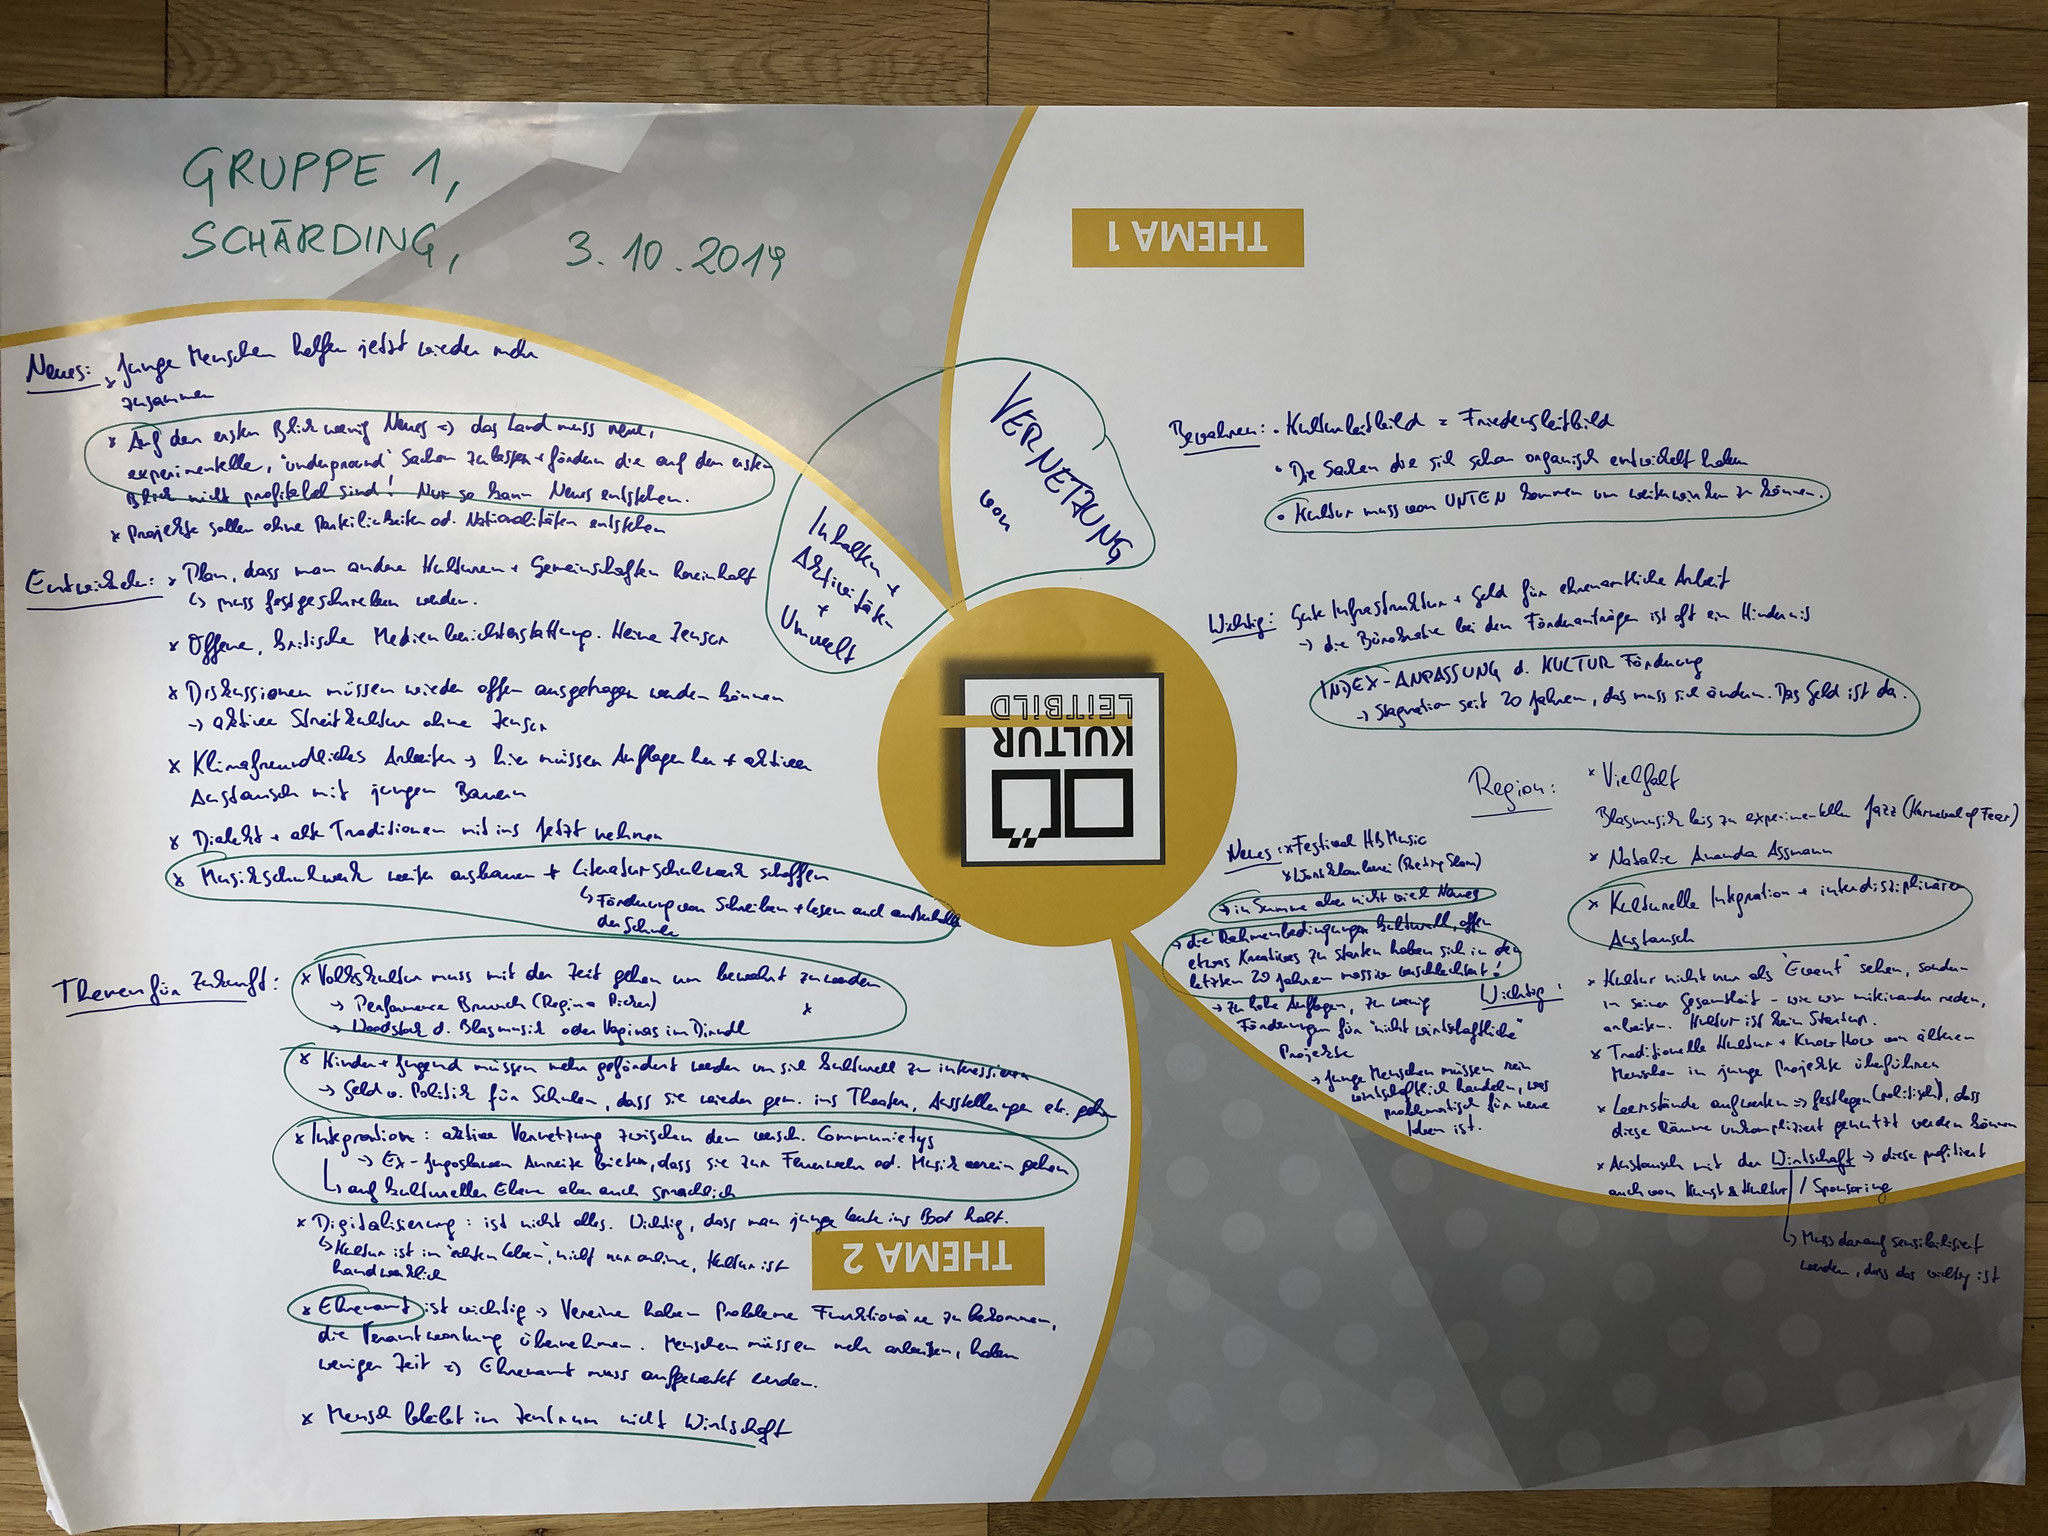 GRUPPE 1,
SCHÄRDING, 3.10.2019
Neues: x Junge Menschen helfen jetzt wieder mehr
zusammen
x Auf den ersten Blick wenig Neues => das Land muss neue,
experimentelle, "underground" Sachen zulassen + fördern die auf den ersten
Blick nicht profitabel sind! Nur so kann Neues entstehen.
x Projekte sollen ohne Parteilichkeiten od. Nationalitäten entstehen
Entwickeln: x Plan, dass man andere Kulturen + Gemeinschaften hereinholt
↳ muss festgeschrieben werden.
x Offene, kritische Medienberichterstattung. Keine Zensur
x Diskussionen müssen wieder offen ausgetragen werden können
→ aktive Streitkultur ohne Zensur
x Klimafreundliches Arbeiten → hier müssen Auflagen her + aktiven
Austausch mit jungen Bauern
x Dialekt + alte Traditionen mit ins Jetzt nehmen
x Musikschulwerk weiter ausbauen + Literaturschulwerk schaffen
↳ Förderung von Schreiben + lesen auch außerhalb
der Schule
Themen für Zukunft: x Volkskultur muss mit der Zeit gehen um bewahrt zu werden
→ Performance Brunch (Regina Picker) x
→ Woodstock d. Blasmusik oder Vaginas im Dirndl
x Kinder + Jugend müssen mehr gefördert werden um sich kulturell zu interessieren
→ Geld v. Politik für Schulen, dass sie wieder gem. ins Theater, Ausstellungen etc. gehen
x Integration: aktive Vernetzung zwischen den versch. Communietys
→ Ex-Jugoslawen Anreize bieten, dass sie zur Feuerwehr od. Musikverein gehen
↳ auf kultureller Ebene aber auch sprachlich
x Digitalisierung: ist nicht alles. Wichtig, dass man junge Leute ins Boot holt.
↳ Kultur ist im "echten Leben", nicht nur online, Kultur ist
handwerklich
THEMA 2
x Ehrenamt ist wichtig → Vereine haben Probleme Funktionäre zu bekommen,
die Verantwortung übernehmen. Menschen müssen mehr arbeiten, haben
weniger Zeit => Ehrenamt muss aufgewertet werden.
x Mensch bleibt im Zentrum nicht Wirtschaft
VERNETZUNG
von
Inhalten +
Aktivitäten
+
Umwelt
KULTUR
LEITBILD
THEMA 1
Bewahren: • Kulturleitbild = Friedensleitbild
• Die Sachen die sich schon organisch entwickelt haben
• Kultur muss von UNTEN kommen um weiterwirken zu können.
Wichtig: Gute Infrastruktur + Geld für ehrenamtliche Arbeit
→ die Bürokratie bei den Förderanträgen ist oft ein Hindernis
INDEX-ANPASSUNG d. KULTUR Förderung
→ Stagnation seit 20 Jahren, das muss sich ändern. Das Geld ist da.
Neues: x Festival HB Music
x Wortklauberei (Poetry Slam)
→ in Summe aber nicht viel Neues
→ die Rahmenbedingungen kulturell, offen
etwas Kreatives zu starten haben sich in den
letzten 20 Jahren massiv verschlechtert!
→ zu hohe Auflagen, zu wenig
Förderungen für "nicht wirtschaftliche"
Projekte
→ Junge Menschen müssen rein
wirtschaftlich handeln, was
problematisch für neue
Ideen ist.
Region: x Vielfalt
Blasmusik bis zu experimentellen Jazz (Karneval of Fear)
x Natalie Ananda Assmann
x Kulturelle Integration + interdisziplinären
Austausch
Wichtig: x Kultur nicht nur als "Event" sehen, sondern
in seiner Gesamtheit - wie wir miteinander reden,
arbeiten. Kultur ist kein Startup.
x Traditionelle Kultur + Know How von älteren
Menschen in junge Projekte überführen
x Leerstände aufwerten => festlegen (politisch), dass
diese Räume unkompliziert genutzt werden können
x Austausch mit der Wirtschaft → diese profitiert
auch von Kunst & Kultur / Sponsoring
↳ Muss darauf sensibilisiert
werden, dass das wichtig ist